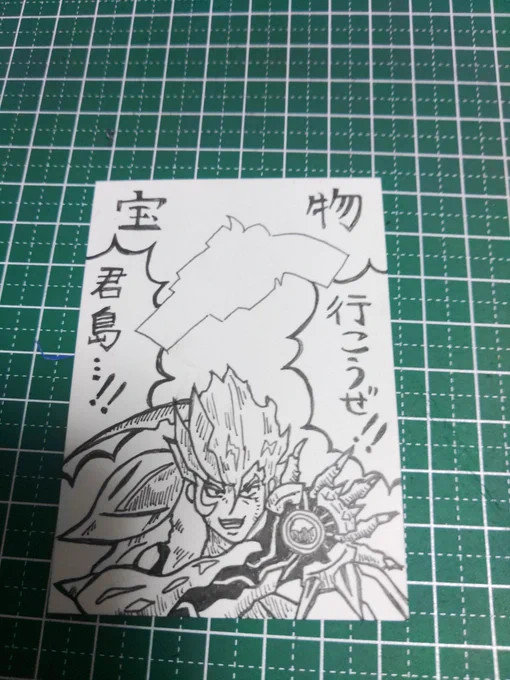 宝物
行こうぜ!!
君島…!!